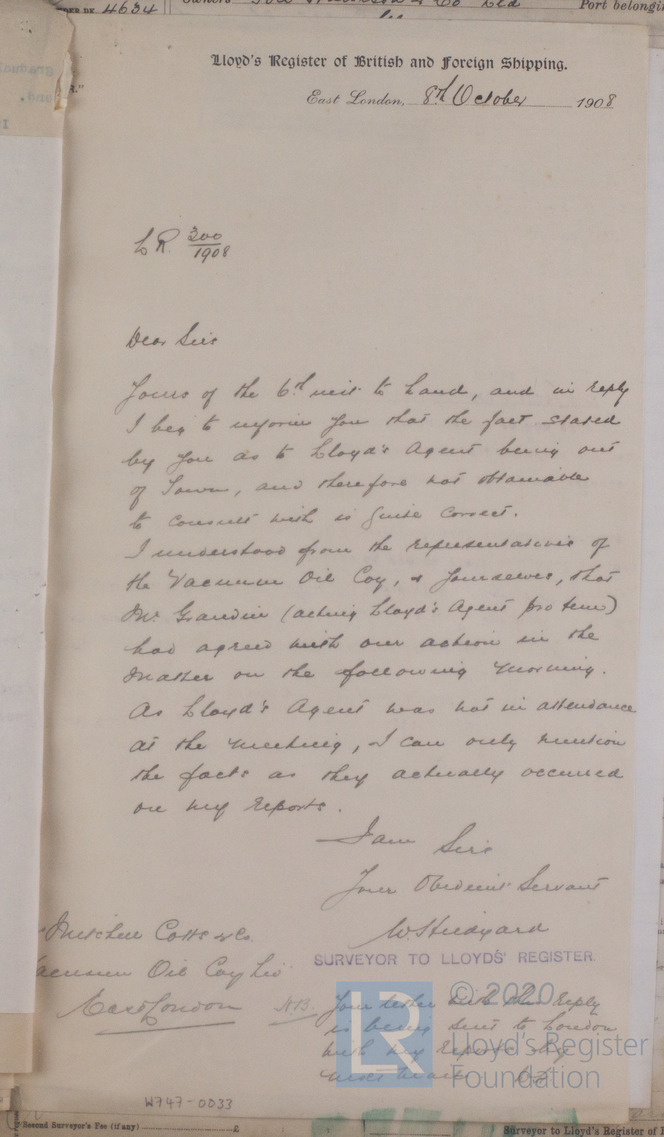 4634
Port belongin
Lloyd's Register of British and Foreign Shipping.
East London, 8th October 1908
LR 300/1908
Dear Sirs
Yours of the 6th inst to hand, and in reply
I beg to inform you that the fact stated
by you as to Lloyd's Agent being out
of Town, and therefore not obtainable
to consult with is quite correct.
I understood from the representatives of
the Vacuum Oil Coy, & yourselves, that
Mr. Grandin (acting Lloyd's Agent pro tem)
had agreed with our action in the
matter on the following morning.
As Lloyd's Agent was not in attendance
at the meeting, I can only mention
the facts as they actually occurred
on my reports.
I am Sirs
Your Obedient Servant
SURVEYOR TO LLOYDS' REGISTER.
Mitchell Cotts & Co.
Vacuum Oil Coy Ltd
East London
N.B. Your letter with this reply
is being sent to London
with my reports by
next mail
© 2020
Lloyd's Register
Foundation
W747-0033
Second Surveyor's Fee (if any) £
Surveyor to Lloyd's Register of